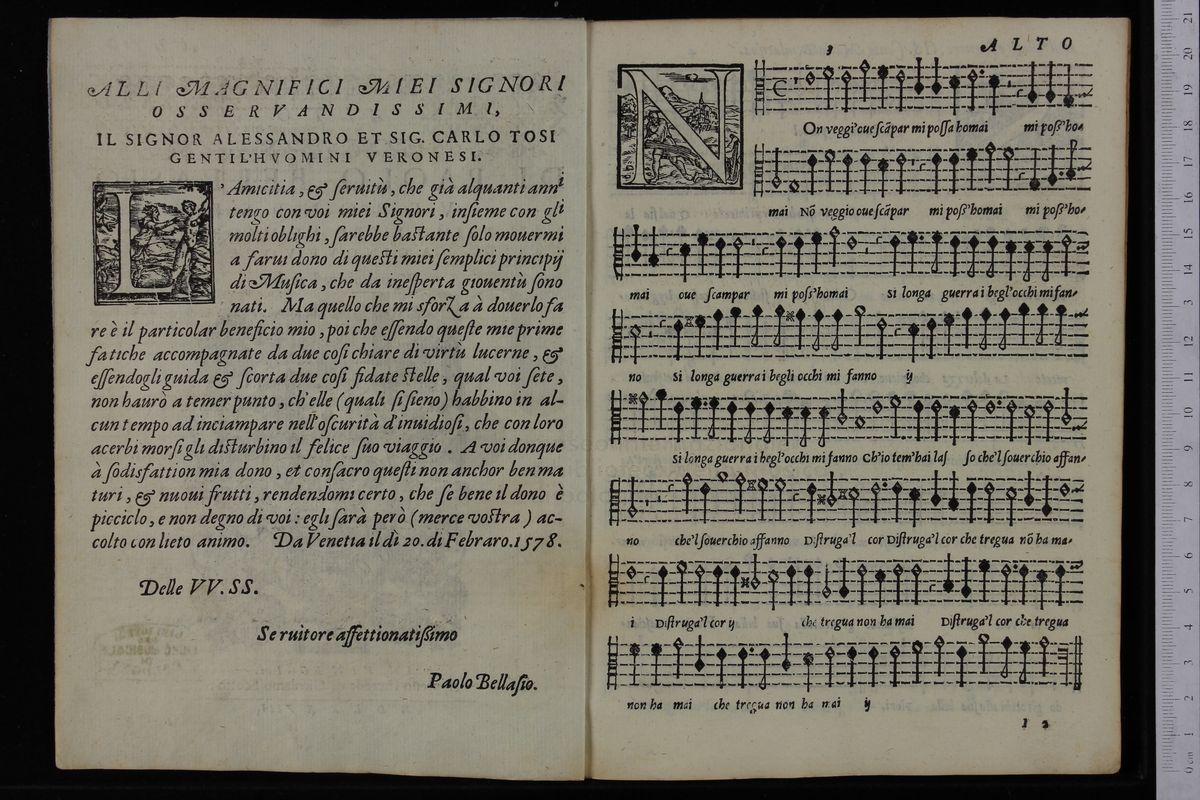 ALLI MAGNIFICI MIEI SIGNORI
OSSERVANDISSIMI,
IL SIGNOR ALESSANDRO ET SIG. CARLO TOSI
GENTIL'HVOMINI VERONESI.
L'Amicitia, & ſeruitù, che già alquanti anni
tengo con voi miei Signori, inſieme con gli
molti oblighi, ſarebbe baſtante ſolo mouermi
a farui dono di queſti miei ſemplici principij
di Muſica, che da ineſperta giouentù ſono
nati. Ma quello che mi sforza à douerlo fa
re è il particolar beneficio mio, poi che eſſendo queſte mie prime
fatiche accompagnate da due coſi chiare di virtù lucerne, &
eſſendogli guida & ſcorta due coſi fidate ſtelle, qual voi ſete,
non haurò a temer punto, ch'elle (quali ſi ſieno) habbino in al-
cun tempo ad inciampare nell'oſcurità d'inuidioſi, che con loro
acerbi morſi gli diſturbino il felice ſuo viaggio. A voi donque
à ſodisfattion mia dono, et conſacro queſti non anchor ben ma
turi, & nuoui frutti, rendendomi certo, che ſe bene il dono è
picciclo, e non degno di voi: egli ſarà però (merce voſtra) ac-
colto con lieto animo. Da Venetia il dì 20. di Febraro. 1578.
Delle VV. SS.
Seruitore affettionatiſſimo
Paolo Bellaſio.
3 ALTO
NOn veggi'oue ſcãpar mi poſſa homai mi poſſ'ho-
mai Nõ veggio oue ſcãpar mi poſſ'homai mi poſſ'ho-
mai oue ſcampar mi poſſ'homai Si longa guerra i begl'occhi mi fan-
no Si longa guerra i begli occhi mi fanno ij
Si longa guerra i begl'occhi mi fanno Ch'io tem'hai laſ ſo che'l ſouerchio affan-
no che'l ſouerchio affanno Diſtruga'l cor Diſtruga'l cor che tregua nõ ha ma-
i Diſtruga'l cor ij che tregua non ha mai Diſtruga'l cor che tregua
non ha mai che tregua non ha mai ij
I 2
0 cm 1 2 3 4 5 6 7 8 9 10 11 12 13 14 15 16 17 18 19 20 21